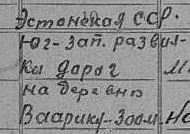 Эстонская ССР.
Юг-Зап. развил-
ки дорог
на деревню
Ваарику-Зоом.